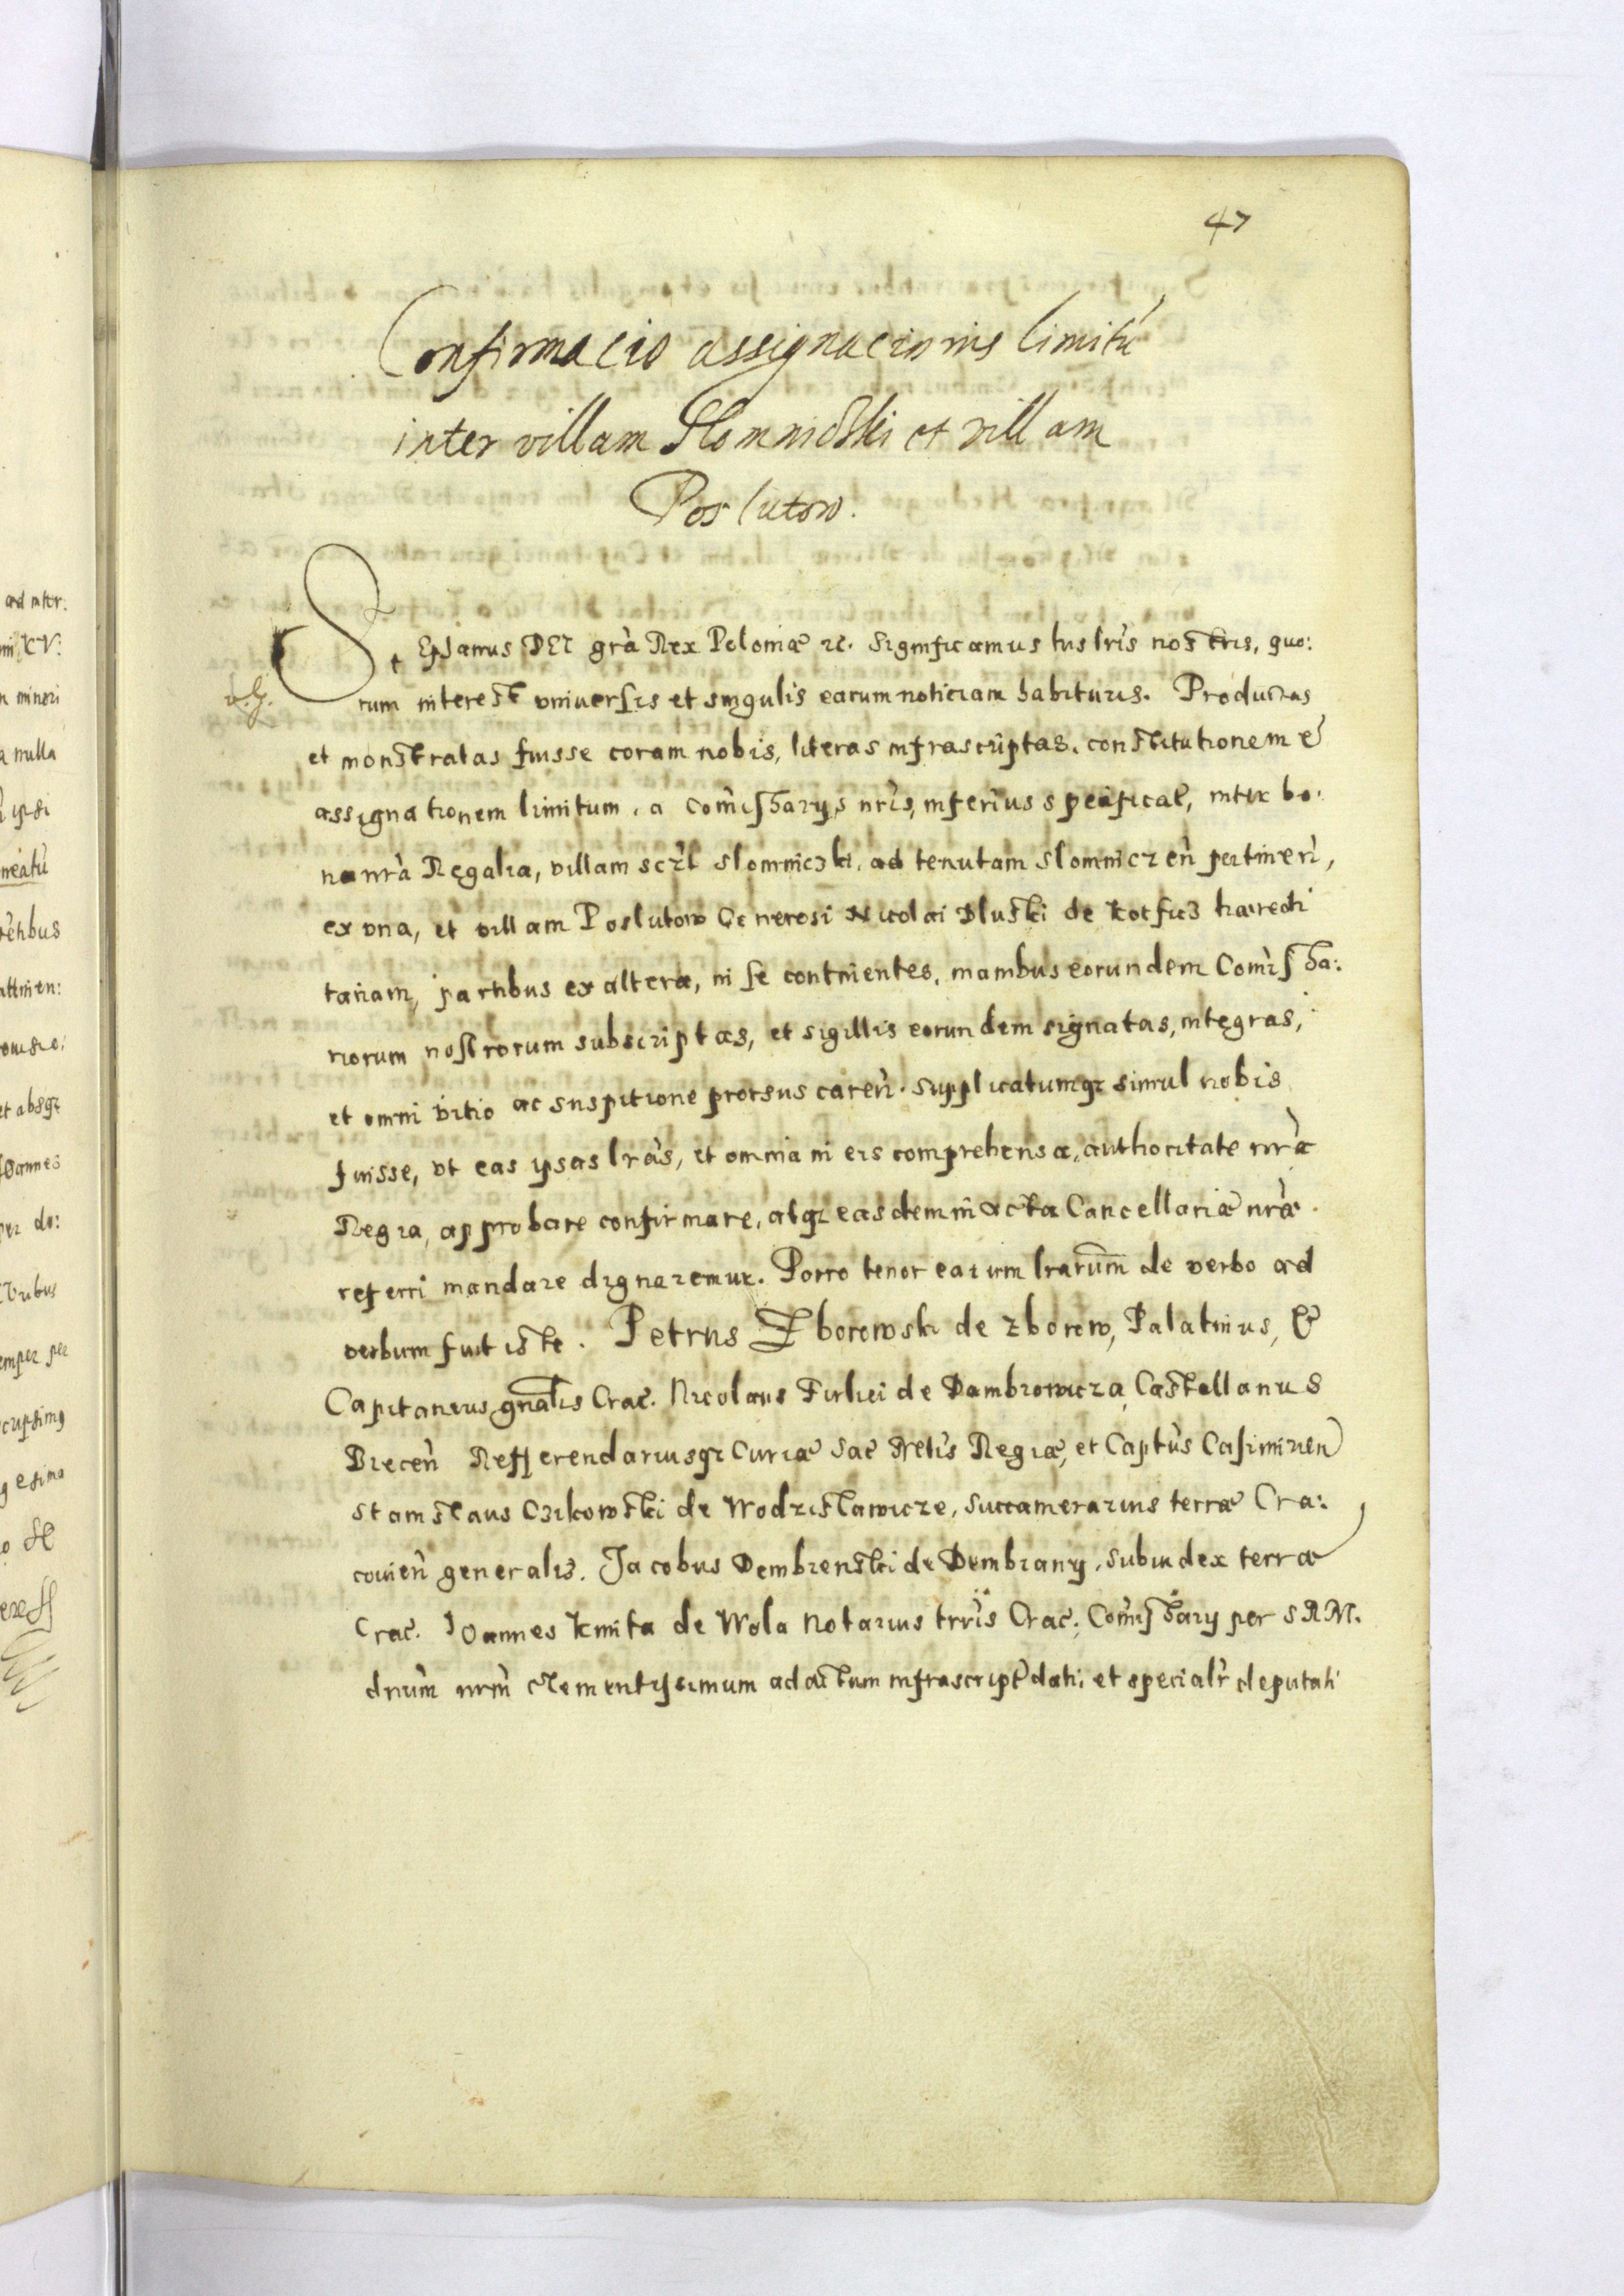 47
Confirmacio assignacionis limitũ
inter villam Slomniczki et villam
Poslutow.
Stephanus DEI grã Rex Poloniæ ꝛc. Significamus hisce lrĩs nostris, quo:
rum interest vniuersis et singulis earum noticiam habituris. Productas
et monstratas fuisse coram nobis, literas infrascriptas, constitutionem et
assignationem limitum, a Comĩssarys nrĩs, inferius specificať, inter bo:
na nrã Regalia, villam sczl̃ Slomniczki, ad tenutam Slomniczeñ pertineñ,
ex vna, et villam Poslutow Generosi Nicolai Dluski de haredi
tariam, partibus ex altera, in se continentes, manibus eorundem Comĩssa:
riorum nostrorum subscriptas, et sigillis eorundem signatas, integras,
et omni vitio ac suspitione prorsus careñ. Supplicatumqꝫ simul nobis
fuisse, vt eas ipsas lrãs, et omnia in eis comprehensa, authoritate nrã
Regia, approbare confirmare, atqꝫ easdem in acta Cancellariæ nræ̃
referri mandare dignaremur. Porro tenor earum lrarum̃ de verbo ad
verbum fuit iste. Petrus Zborowski de Zborow, Palatinus, et
Capitaneus gnãlis Crac̃. Nicolaus Firliei de Dambrowicza, Castellanus
Bieceñ Refferendariusqꝫ Curiæ Sac̃ Mtis Regiæ, et Captũs Casimirieñ
Stanislaus Czikowski de Wodzislawicze, Succamerarius terræ Cra:
covieñ generalis. Jacobus Dembienski de Dembiany, Subiudex terræ
Crac̃. Joannes Kmita de Wola Notarius trrĩs Crac̃. Comĩssary per S R M.
dnum̃ nrm̃ clementissimum ad actum infrascript̃ dati, et specialr̃ deputati